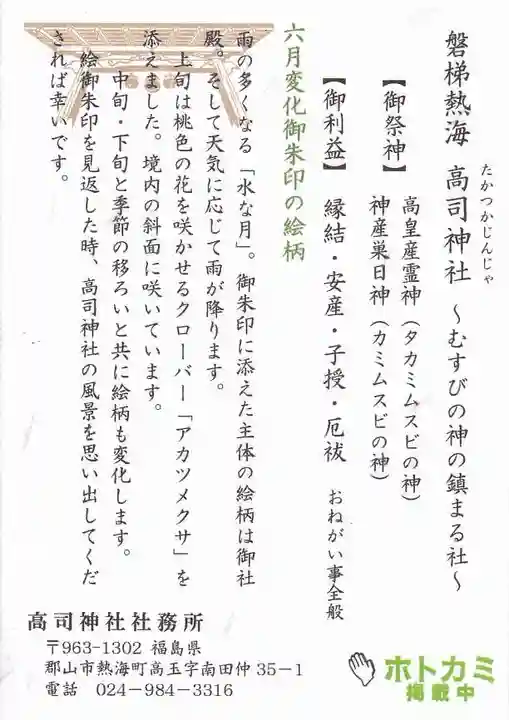 磐梯熱海 高司神社 ～むすびの神の鎮まる社～
たかつかじんじゃ
【御祭神】 高皇産霊神（タカミムスビの神）
神産巣日神（カミムスビの神）
【御利益】 縁結・安産・子授・厄祓 おねがい事全般
六月変化御朱印の絵柄
雨の多くなる「水な月」。御朱印に添えた主体の絵柄は御社
殿。そして天気に応じて雨が降ります。
上旬は桃色の花を咲かせるクローバー「アカツメクサ」を
添えました。境内の斜面に咲いています。
中旬・下旬と季節の移ろいと共に絵柄も変化します。
絵御朱印を見返した時、高司神社の風景を思い出してくだ
されば幸いです。
高司神社社務所
〒963-1302 福島県
郡山市熱海町高玉字南田仲35－1
電話 024-984-3316
ホトカミ
掲載中